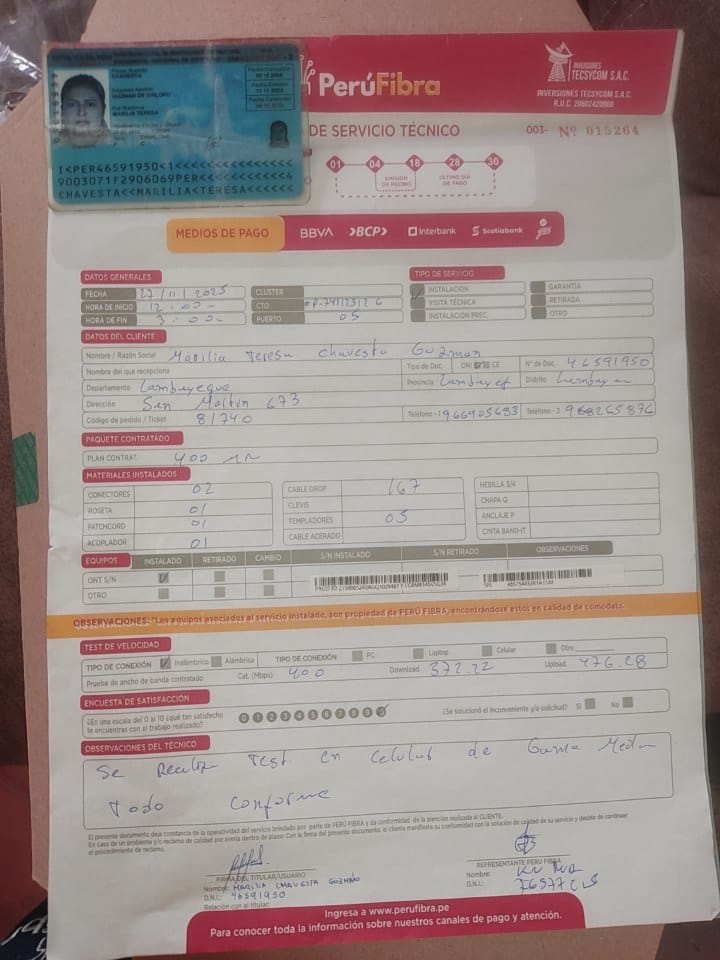 CHAVESTA
GUZMAN DE ORLORU
MARILIA TERESA
I<PER46591950<1<<<<<<<<<<<<<<<
9003071F2906069PER<<<<<<<<<<<4
CHAVESTA<<MARILIA<TERESA<<<<<<
PerúFibra
INVERSIONES
TECSYCOM S.A.C.
INVERSIONES TECSYCOM S.A.C.
R.U.C. 20602429968
DE SERVICIO TÉCNICO
003- Nº 015264
01 04 18 28 30
EMISIÓN DE RECIBO
ÚLTIMO DÍA DE PAGO
MEDIOS DE PAGO BBVA >BCP> Interbank Scotiabank yape
DATOS GENERALES
TIPO DE SERVICIO
FECHA 27/11/2025 CLUSTER
INSTALACIÓN GARANTÍA
HORA DE INICIO 12:00 CTO
VISITA TÉCNICA RETIRADA
HORA DE FIN 3:00 PUERTO 05
INSTALACIÓN PREC. OTRO
DATOS DEL CLIENTE
Nombre / Razón Social Marilia Teresa Chavesta Guzman
Nombre del que recepciona Tipo de Doc. DNI CE N° de Doc. 46591950
Departamento Lambayeque Provincia Distrito
Dirección San Martin 673
Código de pedido / Ticket 81740 Teléfono -1 966905693 Teléfono - 2
PAQUETE CONTRATADO
PLAN CONTRAT. 400
MATERIALES INSTALADOS
CONECTORES 02 CABLE DROP 167 HEBILLA 3/4
ROSETA 01 CLEVIS CHAPA Q
PATCHCORD 01 TEMPLADORES 05 ANCLAJE P
ACOPLADOR 01 CABLE ACERADO CINTA BAND-IT
EQUIPOS INSTALADO RETIRADO CAMBIO S/N INSTALADO S/N RETIRADO OBSERVACIONES
ONT S/N
OTRO
OBSERVACIONES: *Los equipos asociados al servicio instalado, son propiedad de PERÚ FIBRA, encontrándose estos en calidad de comodato.
TEST DE VELOCIDAD
TIPO DE CONEXIÓN Inalámbrico Alámbrica TIPO DE CONEXIÓN PC Laptop Celular Otro
Prueba de ancho de banda contratado Cat. (Mbps) 400 Download 372.22 Upload 476.28
ENCUESTA DE SATISFACCIÓN
¿En una escala del 0 al 10 ¿qué tan satisfecho te encuentras con el trabajo realizado? 0 1 2 3 4 5 6 7 8 9 ¿Se solucionó el inconveniente y/o solicitud? Si No
OBSERVACIONES DEL TÉCNICO
Se Realizo Test en Celular de Gama Media
Todo Conforme
El presente documento deja constancia de la operatividad del servicio brindado por parte de PERÚ FIBRA y da conformidad de la atención realizada al CLIENTE.
En caso de un problema y/o reclamo de calidad por avería dentro de plazo: Con la firma del presente documento, el cliente manifiesta su conformidad con la solución de calidad de su servicio y desiste de continuar el procedimiento de reclamo.
FIRMA DEL TITULAR/USUARIO
Nombre: MARILIA CHAVESTA GUZMÁN
D.N.I.: 46591950
Relación con el titular:
REPRESENTANTE PERU FIBRA
Nombre:
D.N.I.:
Ingresa a www.perufibra.pe
Para conocer toda la información sobre nuestros canales de pago y atención.